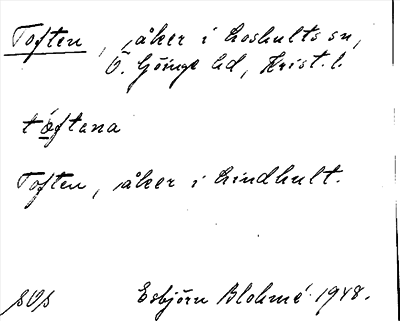 Toften, åker i Loshults sn,
Ö. Göinge hd, Krist. l.
tǿftena
Toften, åker i Lindhult.
SOS Esbjörn Blohmé 1948.